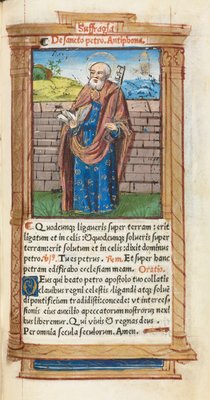 Suffragia
De sancto petro. Antiphona.
Quodcunq3 ligaveris super terram: erit
ligatum et in celis: & quodcunq3 solueris super
terram: erit solutum et in celis: dixit dominus
petro. ℣. Tu es petrus. Rem. Et super hanc
petram edificabo ecclesiam meam. Oratio.
Deus qui beato petro apostolo tuo collatis
clavibus regni celestis: ligandi atq3 solue͂
di pontificium tradidisti: concede: ut interces-
sionis eius auxilio a peccatorum nostrorum nexi
bus liberemur. Qui vivis & regnas deus.
Per omnia secula seculorum. Amen.